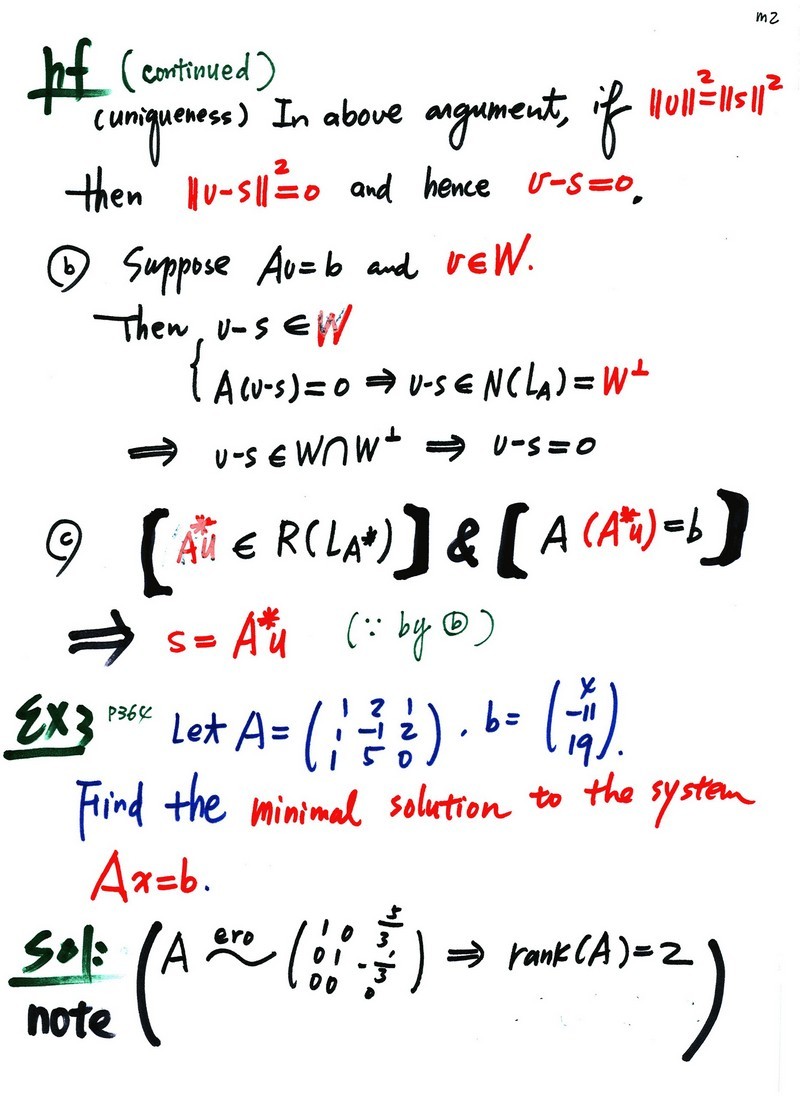 m2
pf (continued)
(uniqueness) In above argument, if ||v||²=||s||²
then ||v-s||²=0 and hence v-s=0.
ⓑ Suppose Av=b and v∈W.
Then, v-s ∈ W
{ A(v-s)=0 ⇒ v-s ∈ N(L_A)=W^⊥
⇒ v-s ∈ W∩W^⊥ ⇒ v-s=0
ⓒ [A*u ∈ R(L_A*)] & [A (A*u)=b]
⇒ s= A*u (∵ by ⓑ)
Ex3 P364 Let A= (1 2 1; 1 -1 2; 1 5 0), b= (4; -11; 19).
Find the minimal solution to the system
Ax=b.
Sol: (A ero~ (1 0 5/3; 0 1 -1/3; 0 0 0) ⇒ rank(A)=2)
note